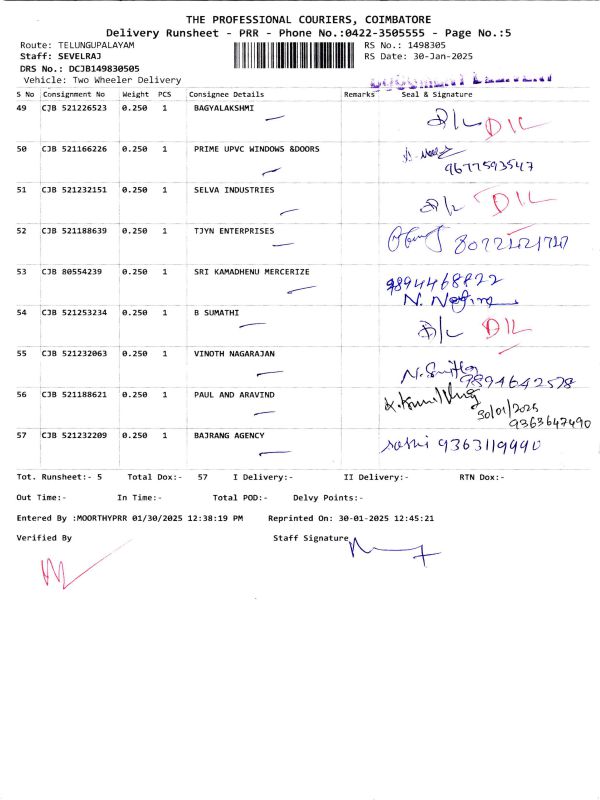 THE PROFESSIONAL COURIERS, COIMBATORE
Delivery Runsheet - PRR - Phone No.:0422-3505555 - Page No.:5
Route: TELUNGUPALAYAM RS No.: 1498305
Staff: SEVELRAJ RS Date: 30-Jan-2025
DRS No.: DCJB149830505
Vehicle: Two Wheeler Delivery
S No Consignment No Weight PCS Consignee Details Remarks Seal & Signature
49 CJB 521226523 0.250 1 BAGYALAKSHMI D/L DIL
50 CJB 521166226 0.250 1 PRIME UPVC WINDOWS &DOORS
9677593547
51 CJB 521232151 0.250 1 SELVA INDUSTRIES D/L DIL
52 CJB 521188639 0.250 1 TJYN ENTERPRISES
53 CJB 80554239 0.250 1 SRI KAMADHENU MERCERIZE 9894468822
54 CJB 521253234 0.250 1 B SUMATHI D/L DIL
55 CJB 521232063 0.250 1 VINOTH NAGARAJAN
9894642578
56 CJB 521188621 0.250 1 PAUL AND ARAVIND
30/01/2025
9363647490
57 CJB 521232209 0.250 1 BAJRANG AGENCY sashi 9363119990
Tot. Runsheet:- 5 Total Dox:- 57 I Delivery:- II Delivery:- RTN Dox:-
Out Time:- In Time:- Total POD:- Delvy Points:-
Entered By :MOORTHYPRR 01/30/2025 12:38:19 PM Reprinted On: 30-01-2025 12:45:21
Verified By Staff Signature